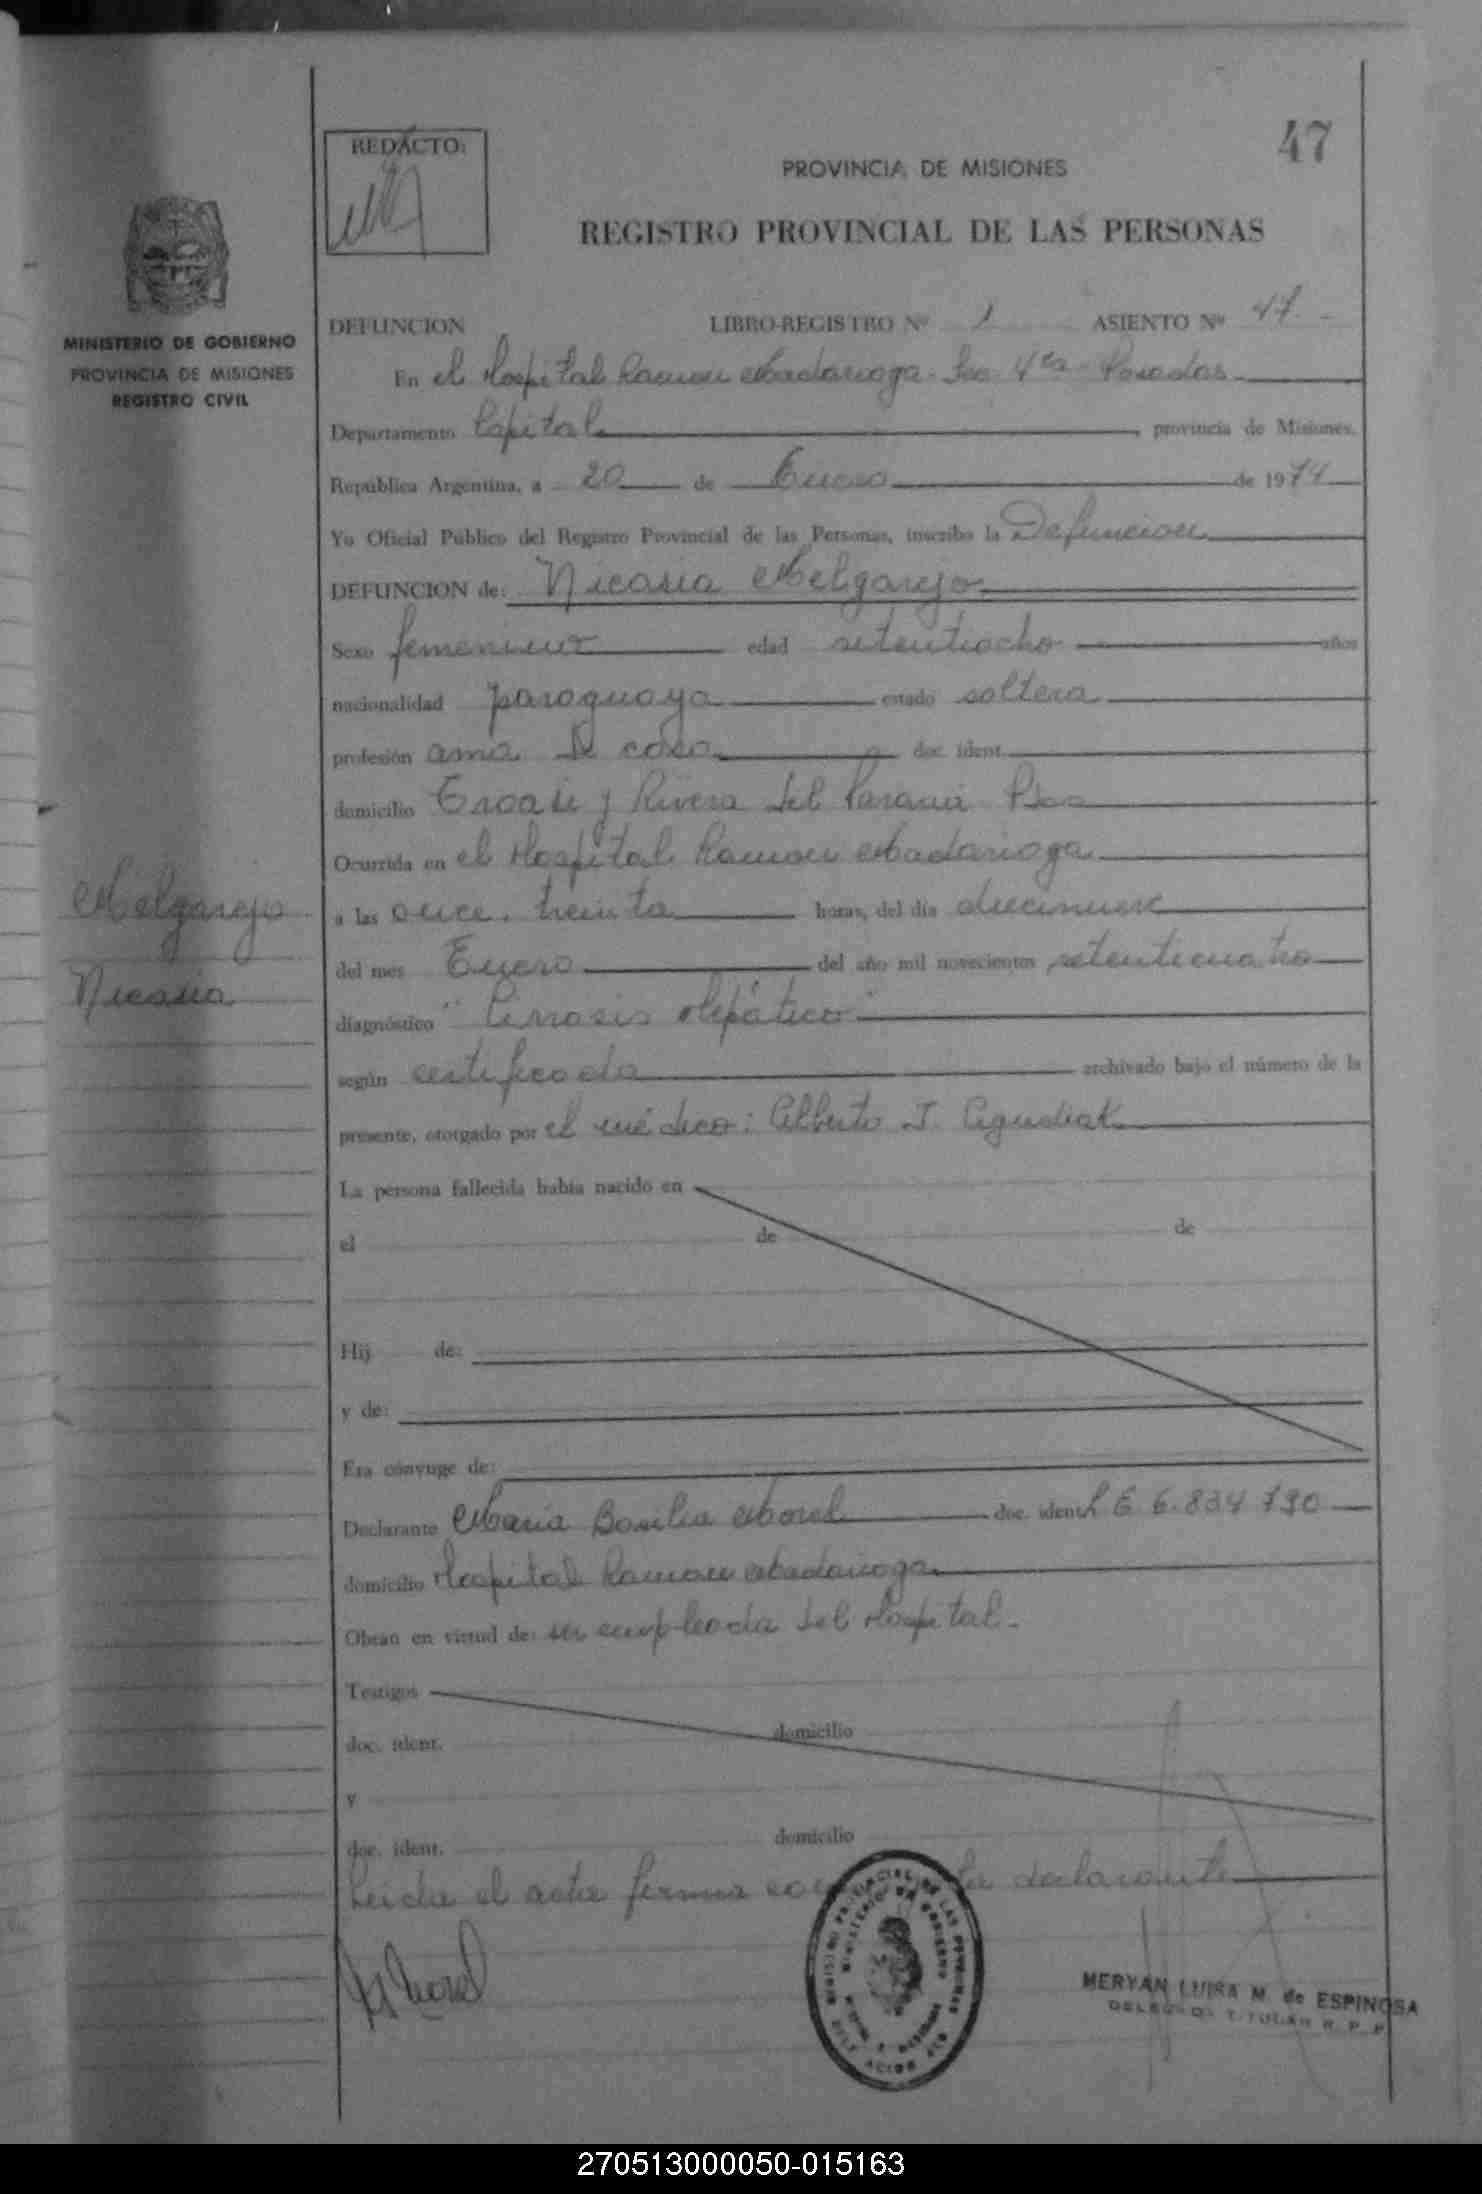 47
REDACTO:
PROVINCIA DE MISIONES
REGISTRO PROVINCIAL DE LAS PERSONAS
MINISTERIO DE GOBIERNO
PROVINCIA DE MISIONES
REGISTRO CIVIL
DEFUNCION LIBRO-REGISTRO Nº 1 ASIENTO Nº 47.-
En el Hospital Ramon Madariaga - Sec. 4ta - Posadas
Departamento Capital provincia de Misiones.
República Argentina, a 20 de Enero de 1974
Yo Oficial Público del Registro Provincial de las Personas, inscribo la Defuncion
DEFUNCION de: Nicasia Melgarejo
Sexo femenino edad setentiocho años
nacionalidad paraguaya estado soltera
profesión ama de casa doc. ident.
domicilio y Rivera del Paraná Pdas
Ocurrida en el Hospital Ramon Madariaga
a las once, treinta horas, del día diecinueve
Melgarejo
del mes Enero del año mil novecientos setenticuatro
Nicasia
diagnóstico "Cirrosis Hepática"
según certificado archivado bajo el número de la
presente, otorgado por el médico: Alberto J.
La persona fallecida había nacido en
el de de
Hij de:
y de:
Era cónyuge de:
Declarante Maria Basilia Morel doc. ident. L E 6.834.790
domicilio Hospital Ramon Madariaga
Obran en virtud de: ser empleada del Hospital.-
Testigos
doc. ident. domicilio
y
doc. ident. domicilio
Leida el acta firma la declarante
REGISTRO PROVINCIAL DE LAS PERSONAS
MINISTERIO DE GOBIERNO
MERYAN LUISA M. de ESPINOSA
DELEGADA TITULAR R. P. P.
270513000050-015163